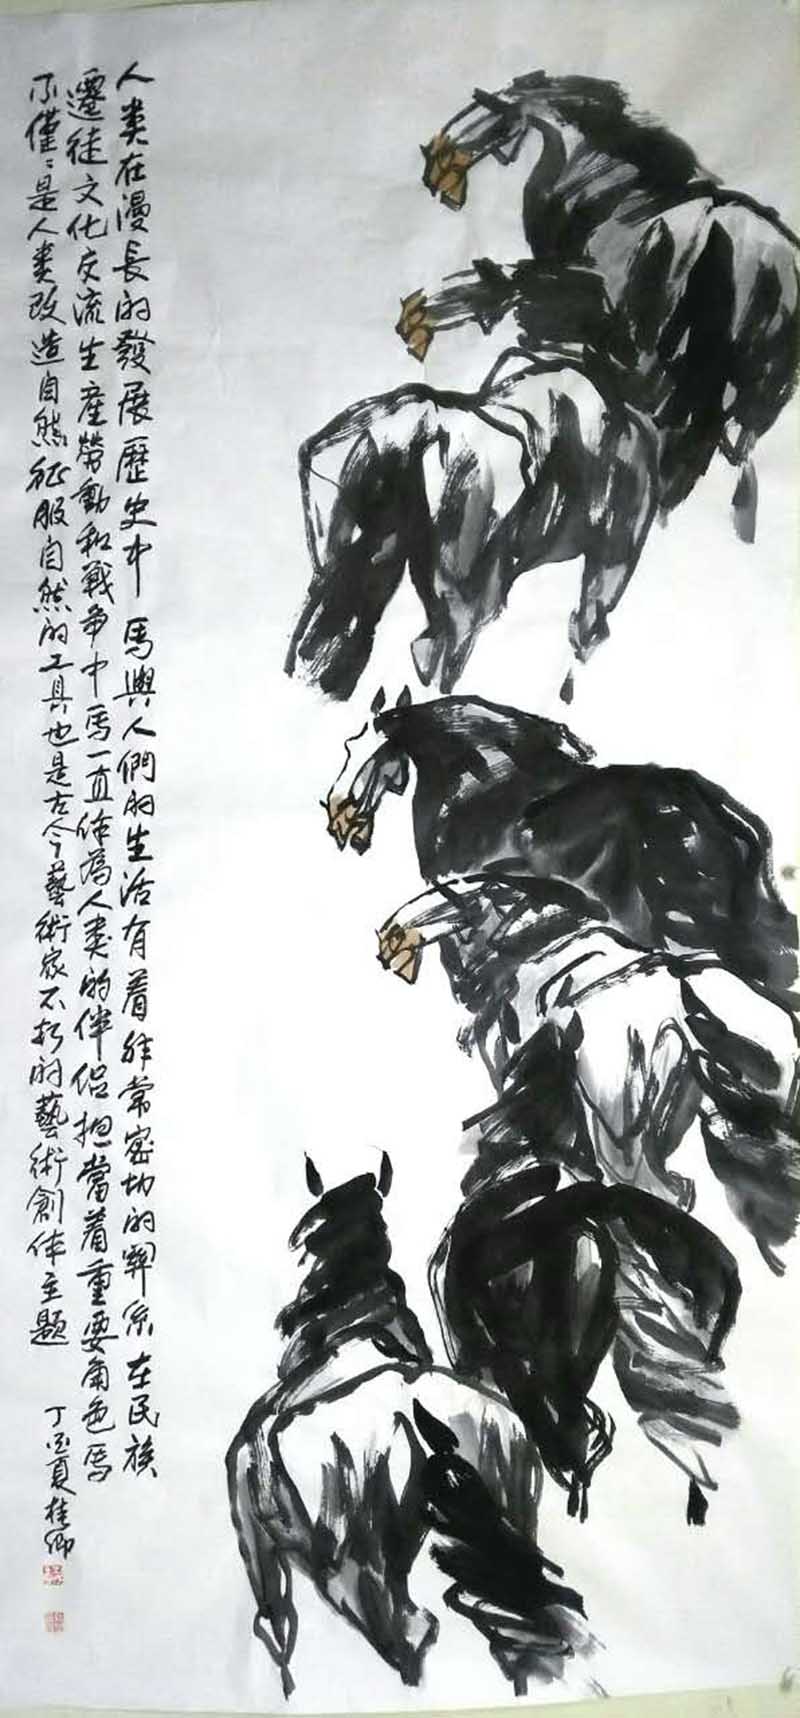 人类在漫長的發展歷史中馬與人們的生活有着非常密切的關系在民族
遷徒文化交流生產勞動和戰争中馬一直作為人类的伴侣担當着重要角色馬
不僅僅是人类改造自然征服自然的工具也是古今藝術家不朽的藝術創作主題
丁酉夏桂卿